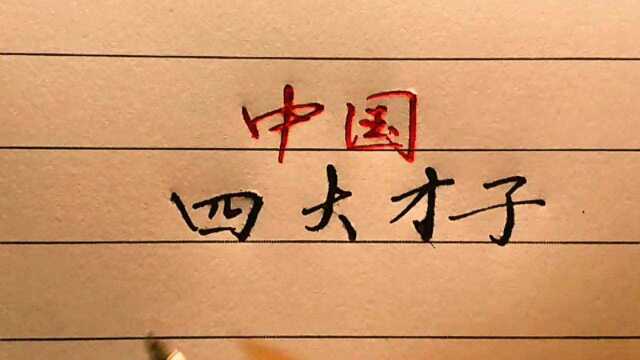 中国
四大才子